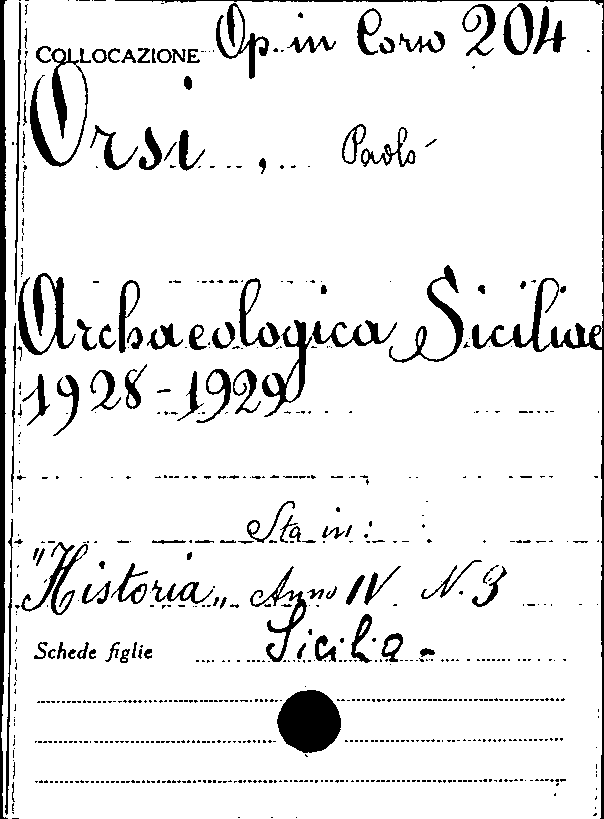 COLLOCAZIONE Op. in Corso 204
Orsi, Paolo
Archaeologica Siciliae
1928-1929
Sta in:
"Historia„ Anno IV N. 3
Schede figlie Sicilia-